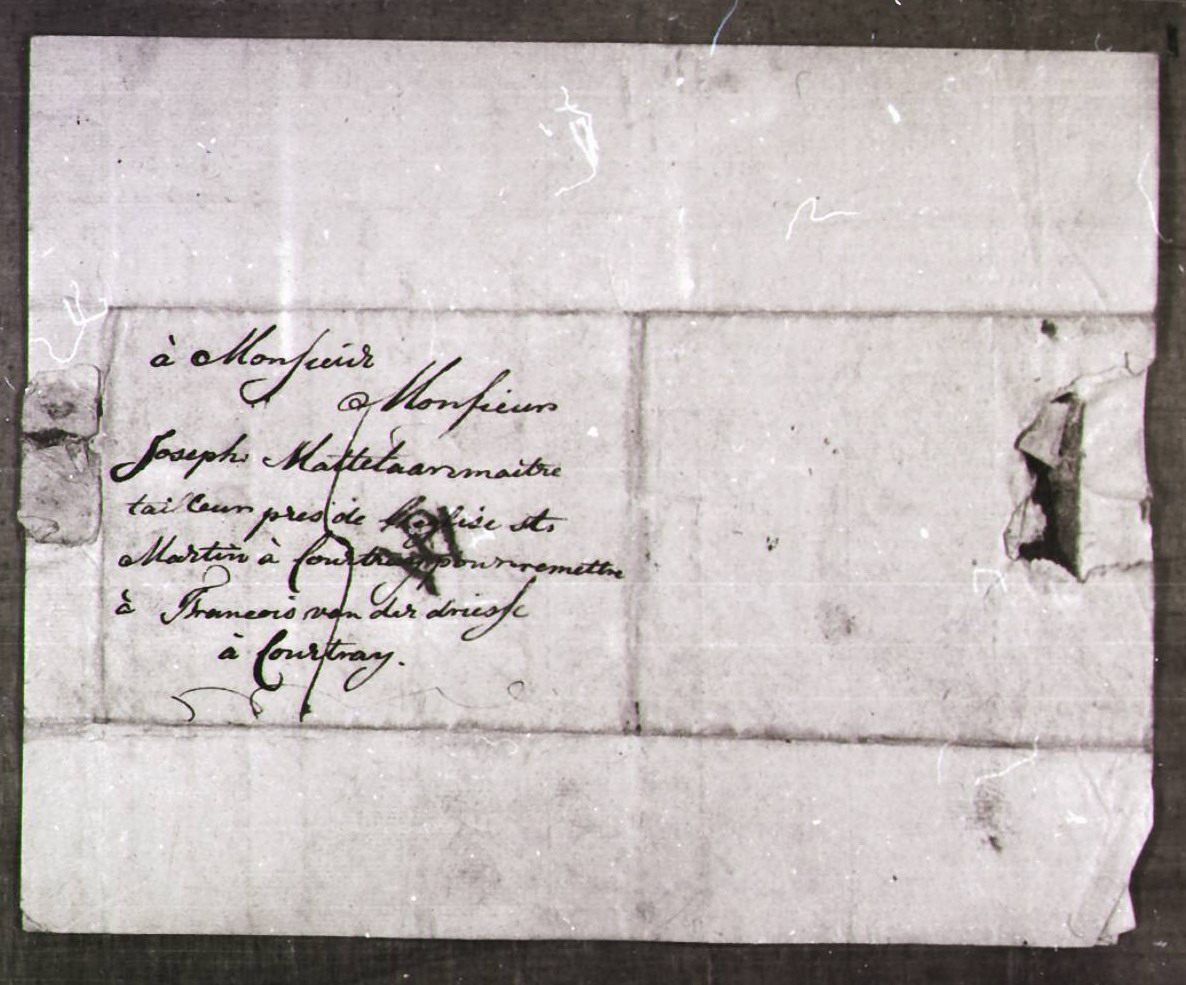 à Monsieur
Monsieur
Joseph Mattelaar maitre
tailleur pres de l'eglise st
Martin à Courtray pour remettre
à Francois van der driesse
à Courtray.